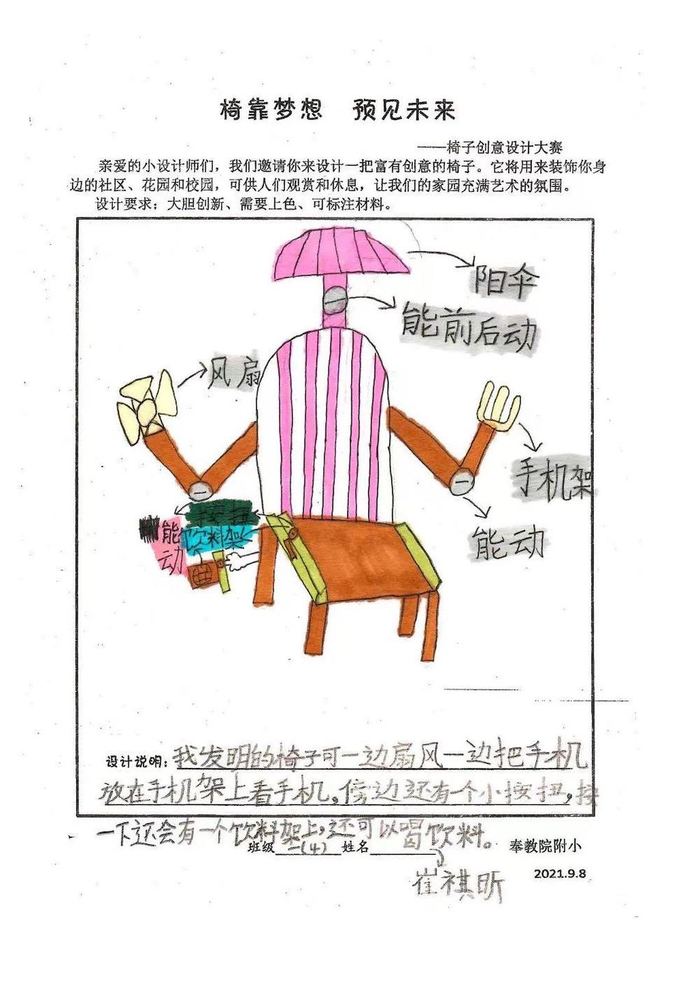 椅靠梦想 预见未来
——椅子创意设计大赛
亲爱的小设计师们，我们邀请你来设计一把富有创意的椅子。它将用来装饰你身
边的社区、花园和校园，可供人们观赏和休息，让我们的家园充满艺术的氛围。
设计要求：大胆创新、需要上色、可标注材料。
阳伞
能前后动
风扇
手机架
能动
按扭
能
饮料架
动
设计说明：我发明的椅子可一边扇风一边把手机
放在手机架上看手机，傍边还有个小按扭，按
一下还会有一个饮料架上，还可以喝饮料。
班级二(4) 姓名 奉教院附小
崔祺昕
2021.9.8